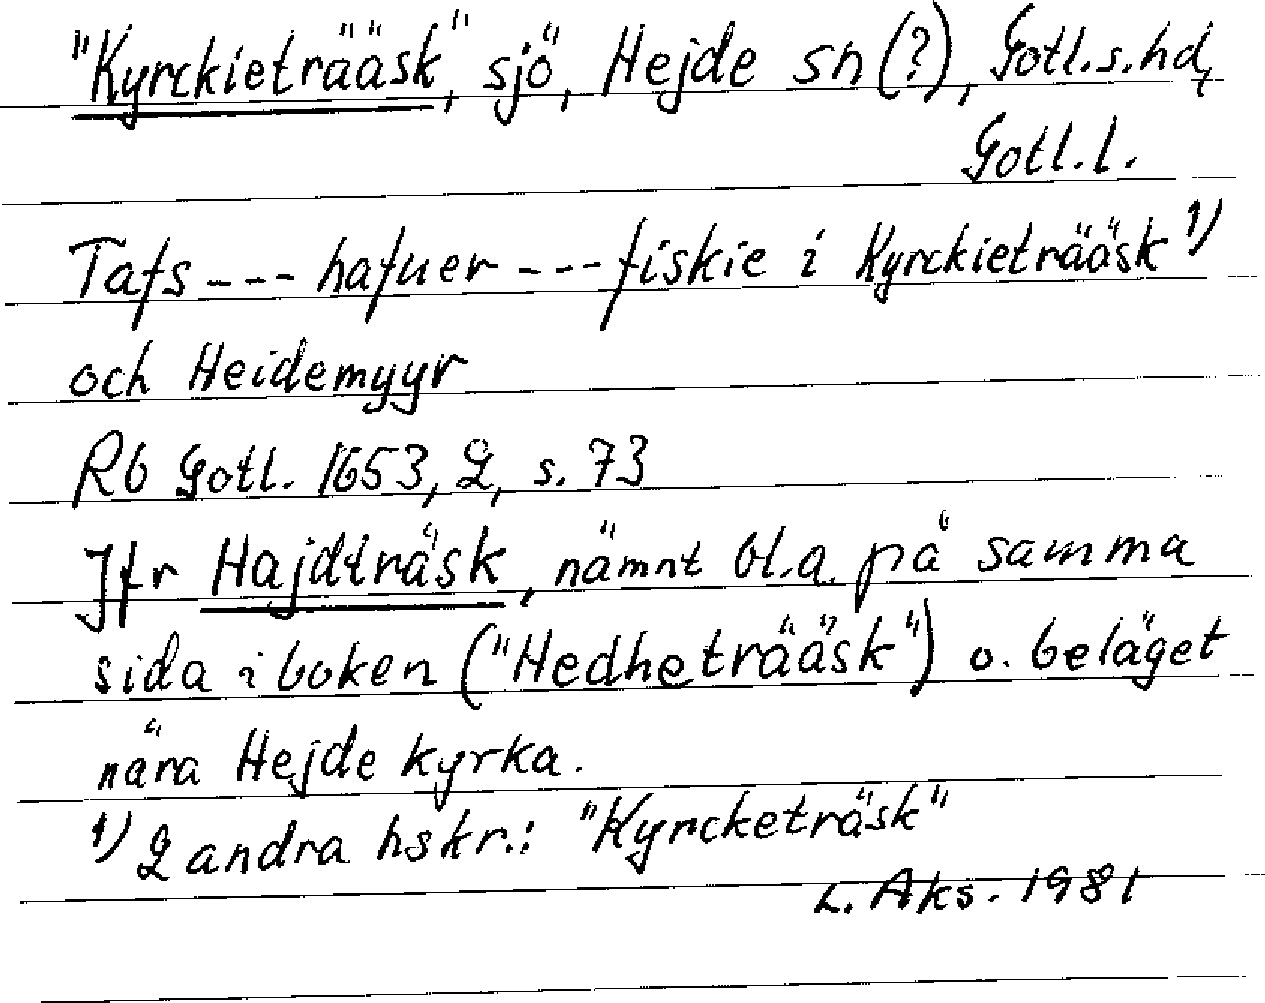 "Kyrckieträäsk", sjö, Hejde sn (?), Gotl. s. hd,
Gotl. l.
Tafs --- hafuer --- fiskie i Kyrckieträäsk 1)
och Heidemyyr
Rb Gotl. 1653, 2, s. 73
Jfr Hajdträsk, nämnt bl.a. på samma
sida i boken ("Hedheträäsk") o. beläget
nära Hejde kyrka.
1) 2 andra hskr.: "Kyrcketräsk"
L. Aks. 1981